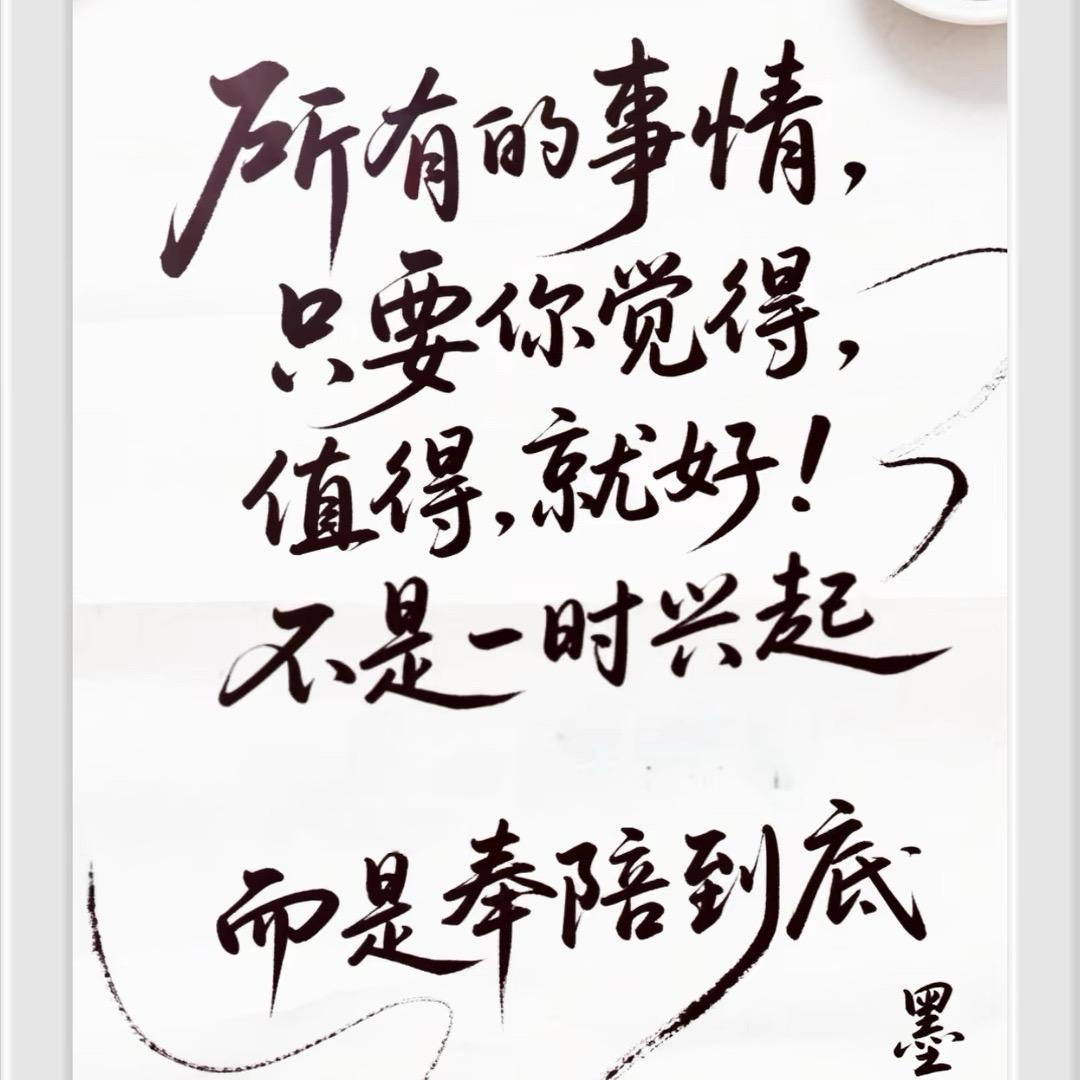 所有的事情，
只要你觉得，
值得，就好！
不是一时兴起
而是奉陪到底
墨